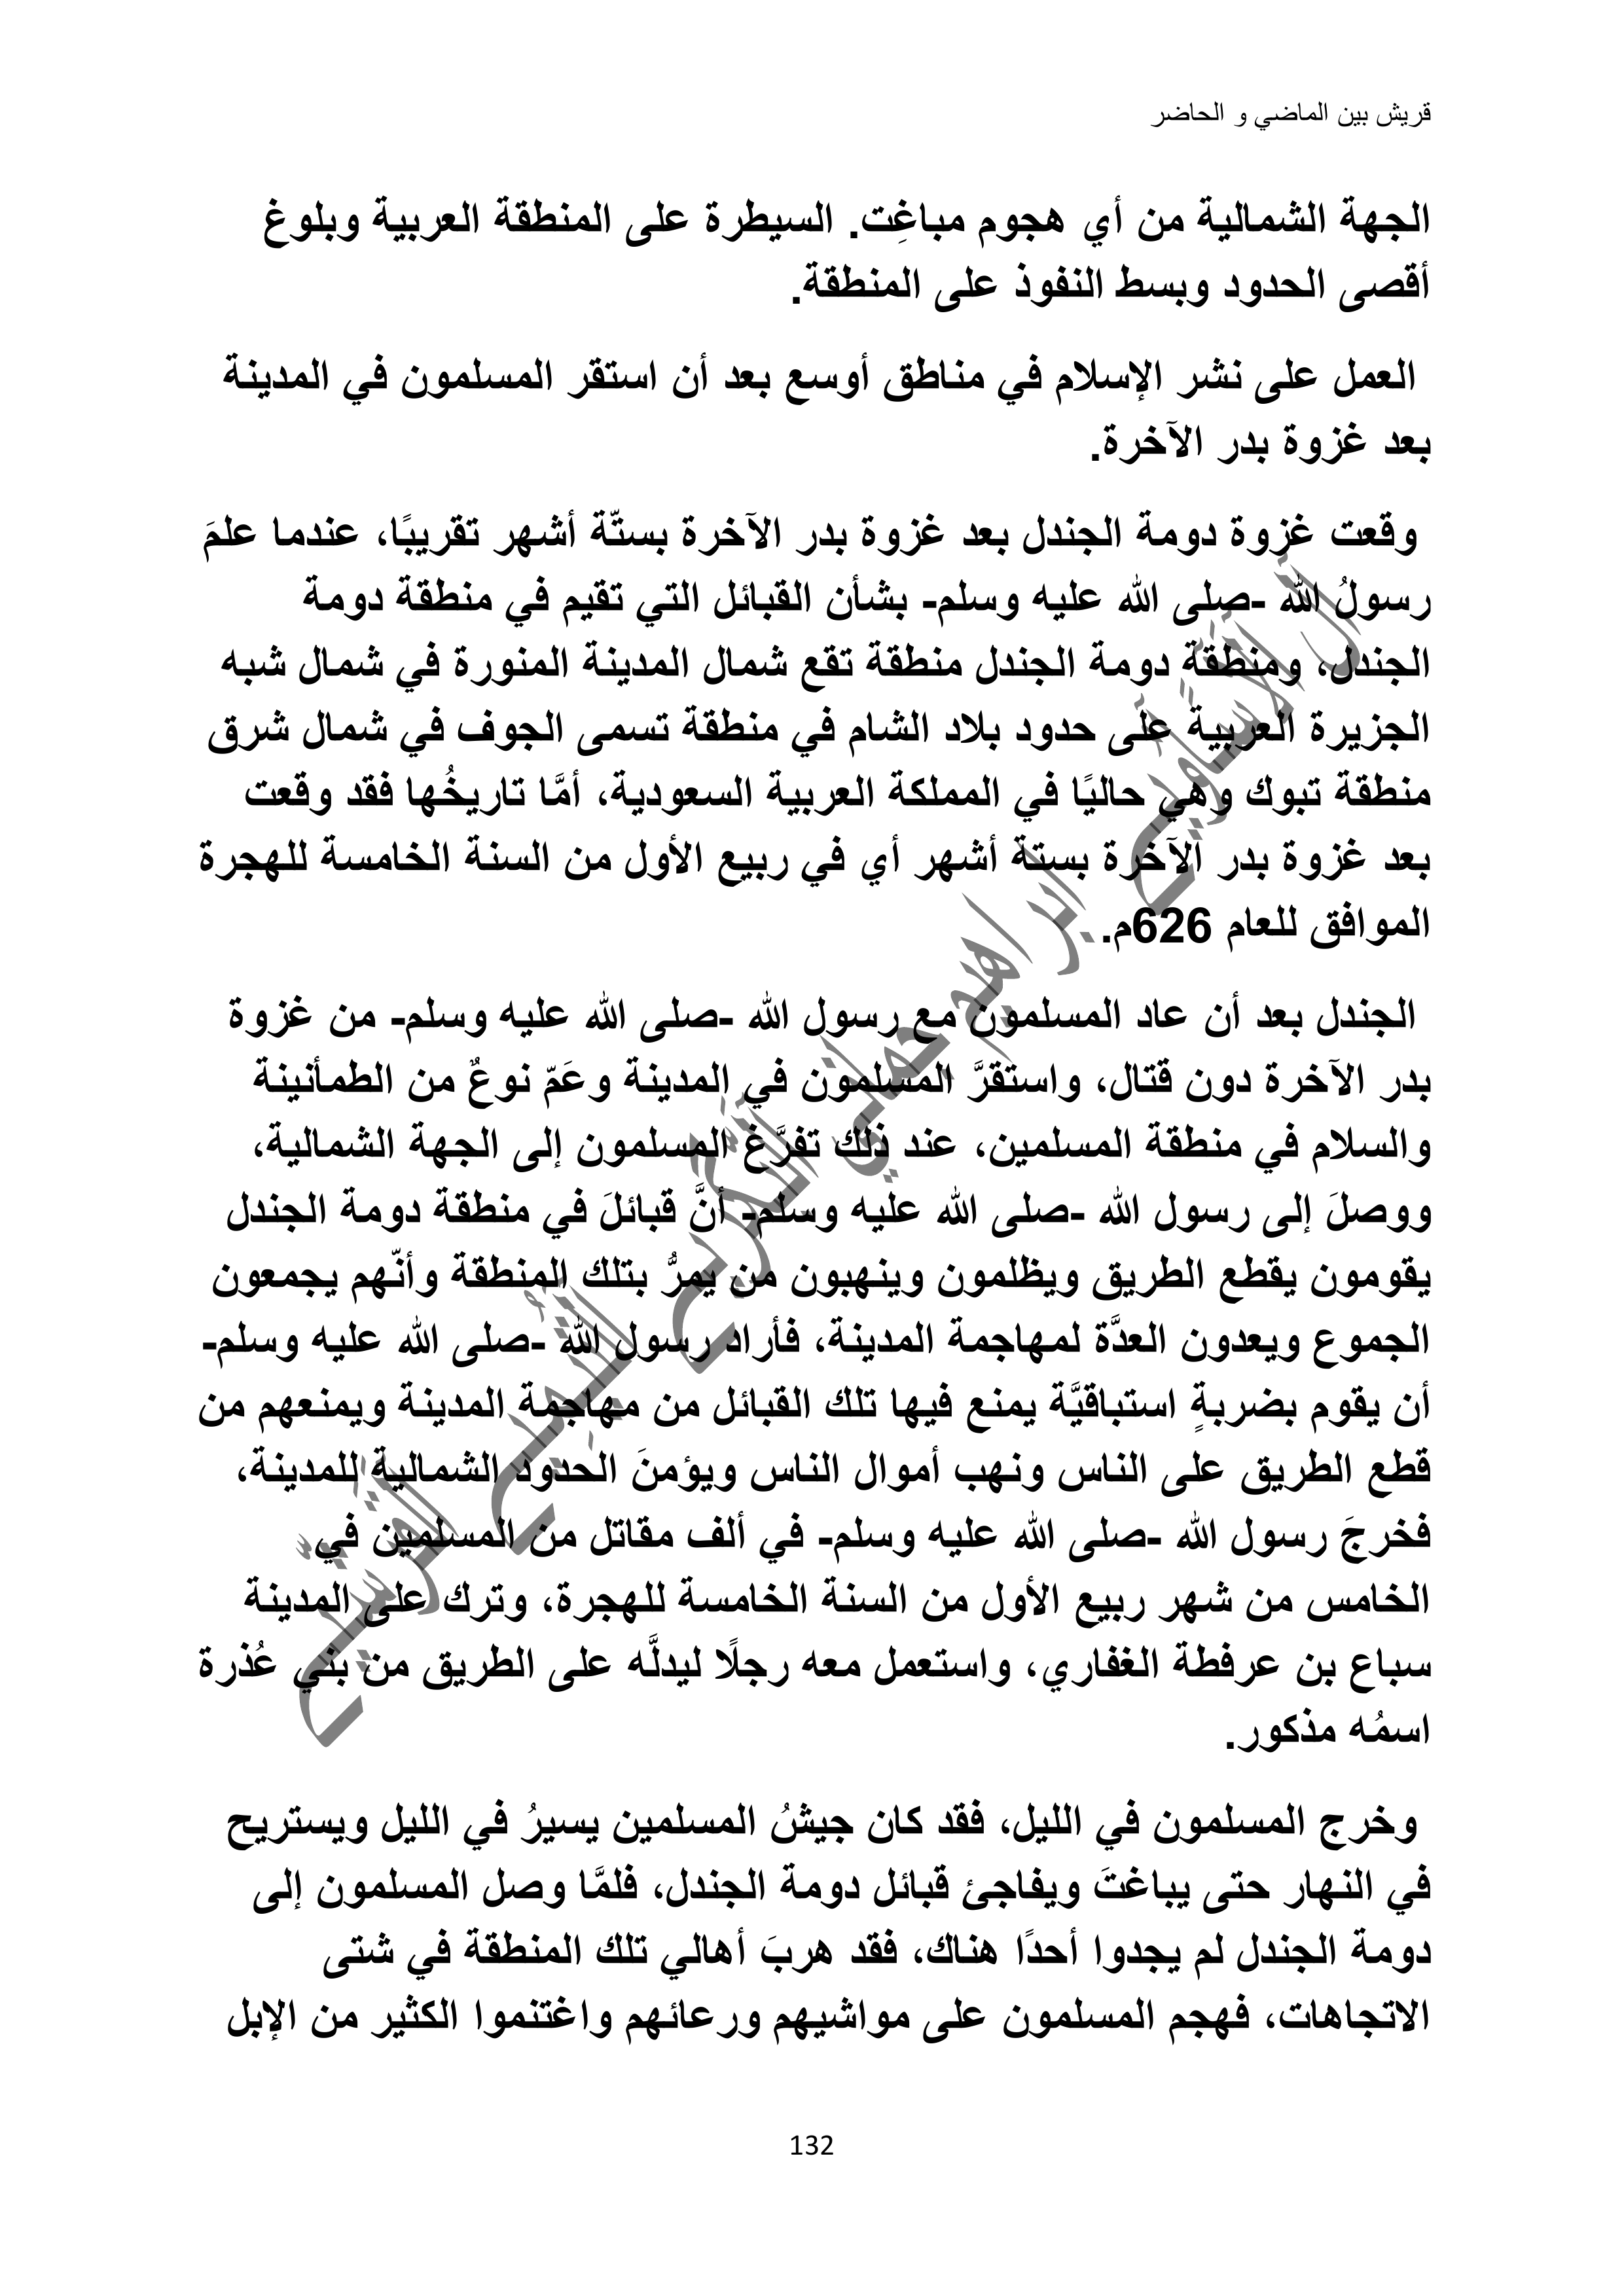 قريش بين الماضي و الحاضر
الجهة الشمالية من أي هجوم مباغِت. السيطرة على المنطقة العربية وبلوغ
أقصى الحدود وبسط النفوذ على المنطقة.
العمل على نشر الإسلام في مناطق أوسع بعد أن استقر المسلمون في المدينة
بعد غزوة بدر الآخرة.
وقعت غزوة دومة الجندل بعد غزوة بدر الآخرة بستّة أشهر تقريبًا، عندما علمَ
رسولُ الله -صلى الله عليه وسلم- بشأن القبائل التي تقيم في منطقة دومة
الجندل، ومنطقة دومة الجندل منطقة تقع شمال المدينة المنورة في شمال شبه
الجزيرة العربية على حدود بلاد الشام في منطقة تسمى الجوف في شمال شرق
منطقة تبوك وهي حاليًا في المملكة العربية السعودية، أمَّا تاريخُها فقد وقعت
بعد غزوة بدر الآخرة بستة أشهر أي في ربيع الأول من السنة الخامسة للهجرة
الموافق للعام 626م.
الجندل بعد أن عاد المسلمون مع رسول الله -صلى الله عليه وسلم- من غزوة
بدر الآخرة دون قتال، واستقرَّ المسلمون في المدينة وعَمّ نوعٌ من الطمأنينة
والسلام في منطقة المسلمين، عند ذلك تفرَّغ المسلمون إلى الجهة الشمالية،
ووصلَ إلى رسول الله -صلى الله عليه وسلم- أنَّ قبائلَ في منطقة دومة الجندل
يقومون يقطع الطريق ويظلمون وينهبون من يمرُّ بتلك المنطقة وأنّهم يجمعون
الجموع ويعدون العدَّة لمهاجمة المدينة، فأراد رسول الله -صلى الله عليه وسلم-
أن يقوم بضربةٍ استباقيَّة يمنع فيها تلك القبائل من مهاجمة المدينة ويمنعهم من
قطع الطريق على الناس ونهب أموال الناس ويؤمنَ الحدود الشمالية للمدينة،
فخرجَ رسول الله -صلى الله عليه وسلم- في ألف مقاتل من المسلمين في
الخامس من شهر ربيع الأول من السنة الخامسة للهجرة، وترك على المدينة
سباع بن عرفطة الغفاري، واستعمل معه رجلًا ليدلَّه على الطريق من بني عُذرة
اسمُه مذكور.
وخرج المسلمون في الليل، فقد كان جيشُ المسلمين يسيرُ في الليل ويستريح
في النهار حتى يباغتَ ويفاجئ قبائل دومة الجندل، فلمَّا وصل المسلمون إلى
دومة الجندل لم يجدوا أحدًا هناك، فقد هربَ أهالي تلك المنطقة في شتى
الاتجاهات، فهجم المسلمون على مواشيهم ورعائهم واغتنموا الكثير من الإبل
132